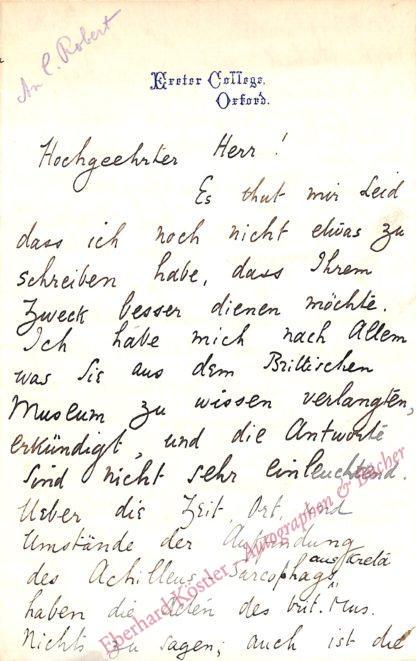 An C. Robert
Exeter College,
Oxford.
Hochgeehrter Herr!
Es thut mir Leid
dass ich noch nicht etwas zu
schreiben habe, dass Ihrem
Zweck besser dienen möchte.
Ich habe mich nach Allem
was Sie aus dem Brittischen
Museum zu wissen verlangten,
erkündigt, und die Antworte
sind nicht sehr einleuchtend.
Ueber die Zeit, Ort, und
Umstände der Auffindung
des Achilleus Sarcophags aus Kreta
haben die des brit. Mus.
Nichts zu sagen; auch ist die
Eberhard Köstler Autographen & Bücher